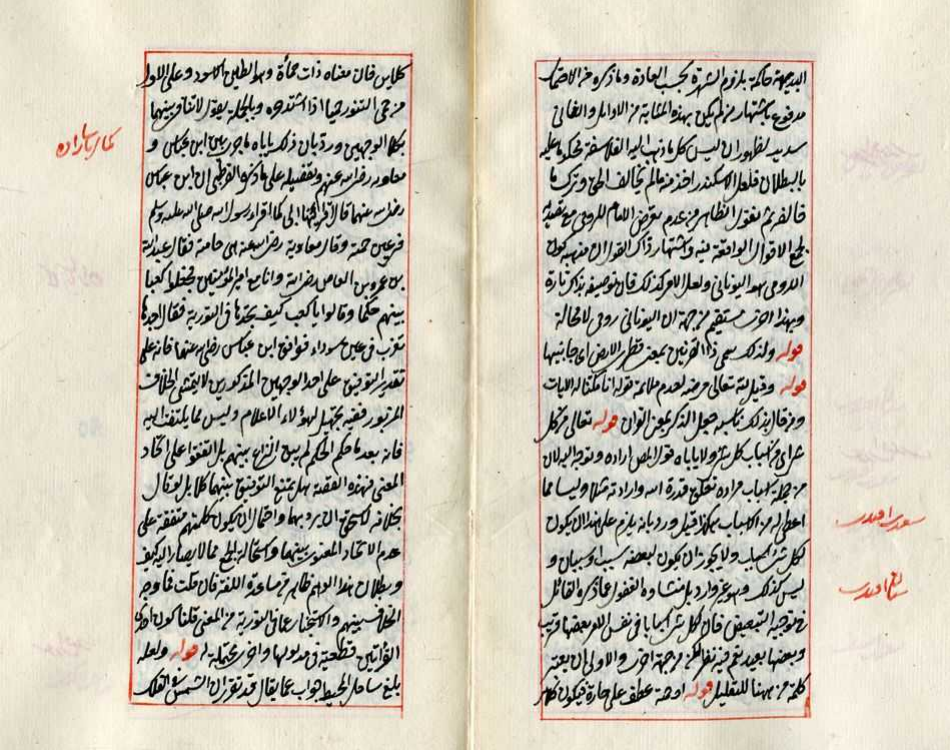 البديهة حاكمة بلزوم الشهرة بحسب العادة وما ذكره من الاحتمال
مدفوع باشتهار من لم يكن بهذه المثابة من الاوائل والثاني
سديد لظهور ان ليس كل ما ذهب اليه الفلاسفة محكوما عليه
بالبطلان فلعل الاسكندر اخذ منه ما لم يخالف الحق وترك ما
خالفه ثم نقول الظاهر من عدم تعرض الامام للرومي مع تصديه
لجمع الاقوال الواقعة فيه واشتهار ذاك القول ان
الرومي هو اليوناني ولعل الامر كذلك فان توصيفه بذاك تارة
وبهذا اخرى مستقيم من جهة ان اليوناني رومي لا محالة
قوله ولذلك سمي ذا القرنين بمعنى قطري الارض اي جانبيها
قوله وقيل لله تعالى مرضه لعدم ملائمة قوله انا مكنا له الايات
ومن قال بذلك جعل الذكر بمعنى القران قوله تعالى من كل
شيء اي من اسباب كل شيء ولا ياباه قول المص اراده وتوجه اليه لان
من جملة اسباب مراده تعلق قدرة الله وارادته مثلا وليسا مما
اعطي له من الاسباب هكذا قيل ورد بانه يلزم على هذا ان يكون
لكل شيء اسباب ولا يجوز ان يكون لبعضه سبب او سببان و
ليس كذلك وهو غير وارد بل منشاؤه الغفول عما ذكره القائل
في توجيه التبعيض فان لكل شيء اسبابا في نفس الامر بعضها قريب
وبعضها بعيد نعم فيه نظر لكن من جهة اخرى والاولى ان يقال
كلمة من ههنا للتقليل قوله او حمة عطف على حارة فيكون
سعدى افندى
سنان افندى
كلابن فان معناه ذات حمأة وهو الطين الاسود وعلى الاول
من حمي التنور حميا اذا اشتد حره وبالجملة يقول لا تنافي بينهما
بكلا الوجهين ورد بان ذلك ياباه ما جرى بين ابن عباس و
معاوية رضي الله عنهم وتفصيله على ما ذكره القرطبي ان ابن عباس
رضي الله عنهما قال اقرأنيها ابي كما اقرأه رسول الله صلى الله عليه وسلم
في عين حمئة وقال معاوية رضي الله عنه هي حامية فقال عبد الله
بن عمرو بن العاص رضي الله وانا مع امير المؤمنين فجعلوا كعبا
بينهم حكما وقالوا يا كعب كيف تجدها في التورية فقال اجدها
تغرب في عين سوداء فوافق ابن عباس رضي الله عنهما فانه على
تقدير التوفيق على احد الوجهين المذكورين لا يتمشى الخلاف
المزبور ففيه تجهيل لهؤلاء الاعلام وليس مما يلتفت اليه
فانه بعد ما حكم الحكم لم يبق النزاع بينهم بل اتفقوا على اتحاد
المعنى فهذه القصة هل تمنع التوفيق بينهما كلا بل لو قال
بخلافه لاستحق ان يرد بها واحتمال ان يكون كلمتهم متفقة على
عدم الاتحاد المعنوي بينهما واستحالة الجمع مما لا يصار اليه كيف
وبطلان هذا الوهم ظاهر من مساعدة اللغة فان قلت فما وجه
الخلاف بينهم والاستخبار عما في التورية من المعنى قلنا كون احدى
القراءتين قطعية في مدلولها والاخرى محتملة له قوله ولعله
بلغ ساحل المحيط جواب عما يقال قد تقرر ان الشمس في الفلك